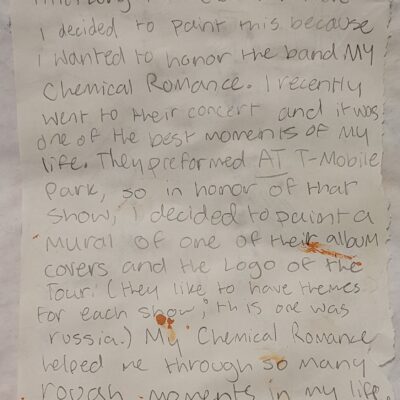 I decided to paint this because
I wanted to honor the band MY
Chemical Romance. I recently
went to their concert and it was
one of the best moments of my
life. They preformed AT T-Mobile
Park, so in honor of that
show, I decided to paint a
mural of one of their album
covers and the Logo of the
Tour. (they like to have themes
for each show, this one was
russia.) My Chemical Romance
helped me through so many
rough moments in my life.